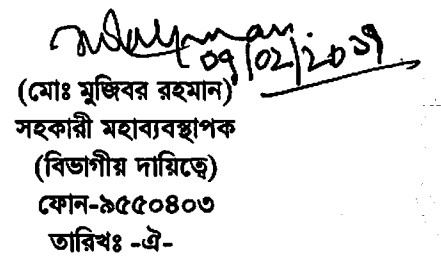 09/02/2019
(মোঃ মুজিবর রহমান)
সহকারী মহাব্যবস্থাপক
(বিভাগীয় দায়িত্বে)
ফোন-৯৫৫০৪০৩
তারিখঃ -ঐ-